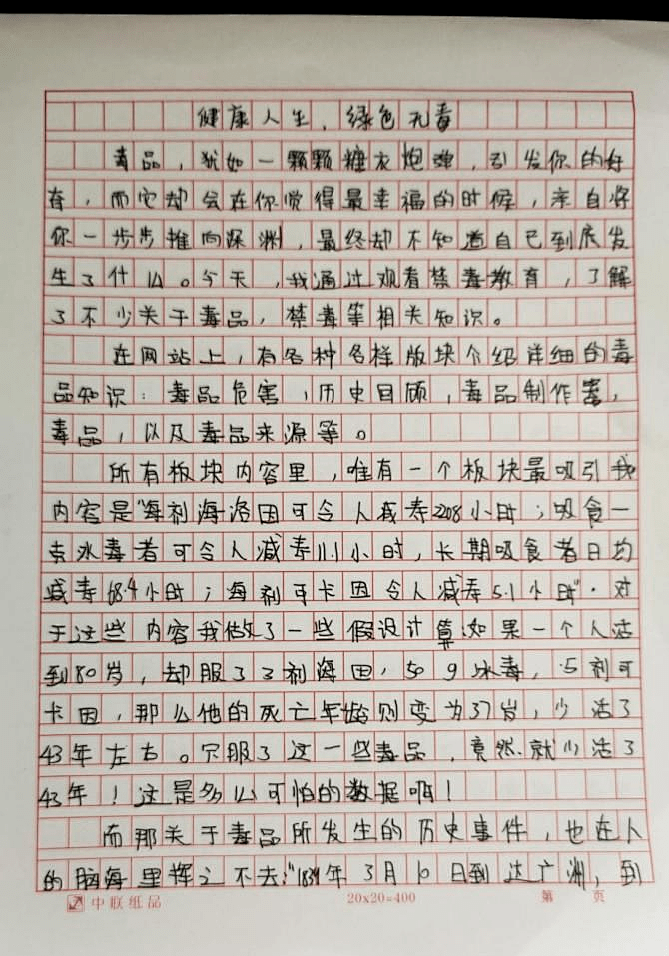 健康人生，绿色无毒
毒品，犹如一颗颗糖衣炮弹，引发你的好
奇，而它却会在你觉得最幸福的时候，亲自将
你一步步推向深渊，最终却不知道自己到底发
生了什么。今天，我通过观看禁毒教育，了解
了不少关于毒品，禁毒等相关知识。
在网站上，有各种各样版块介绍详细的毒
品知识：毒品危害，历史回顾，毒品制作
毒品，以及毒品来源等。
所有板块内容里，唯有一个板块最吸引我
内容是“每剂海洛因可令人减寿2208小时；吸食一
克冰毒者可令人减寿111小时，长期吸食者日均
减寿68.4小时；每剂可卡因令人减寿5.1小时”。对
于这些内容我做了一些假设计算：如果一个人活
到80岁，却服了3剂海因，50g冰毒，5剂可
卡因，那么他的死亡年龄则变为37岁，少活了
43年左右。只服了这一些毒品，竟然就少活了
43年！这是多么可怕的数据啊！
而那关于毒品所发生的历史事件，也在人
的脑海里挥之不去：“1839年3月10日到达广洲，到
中联纸品
20×20=400
第 页